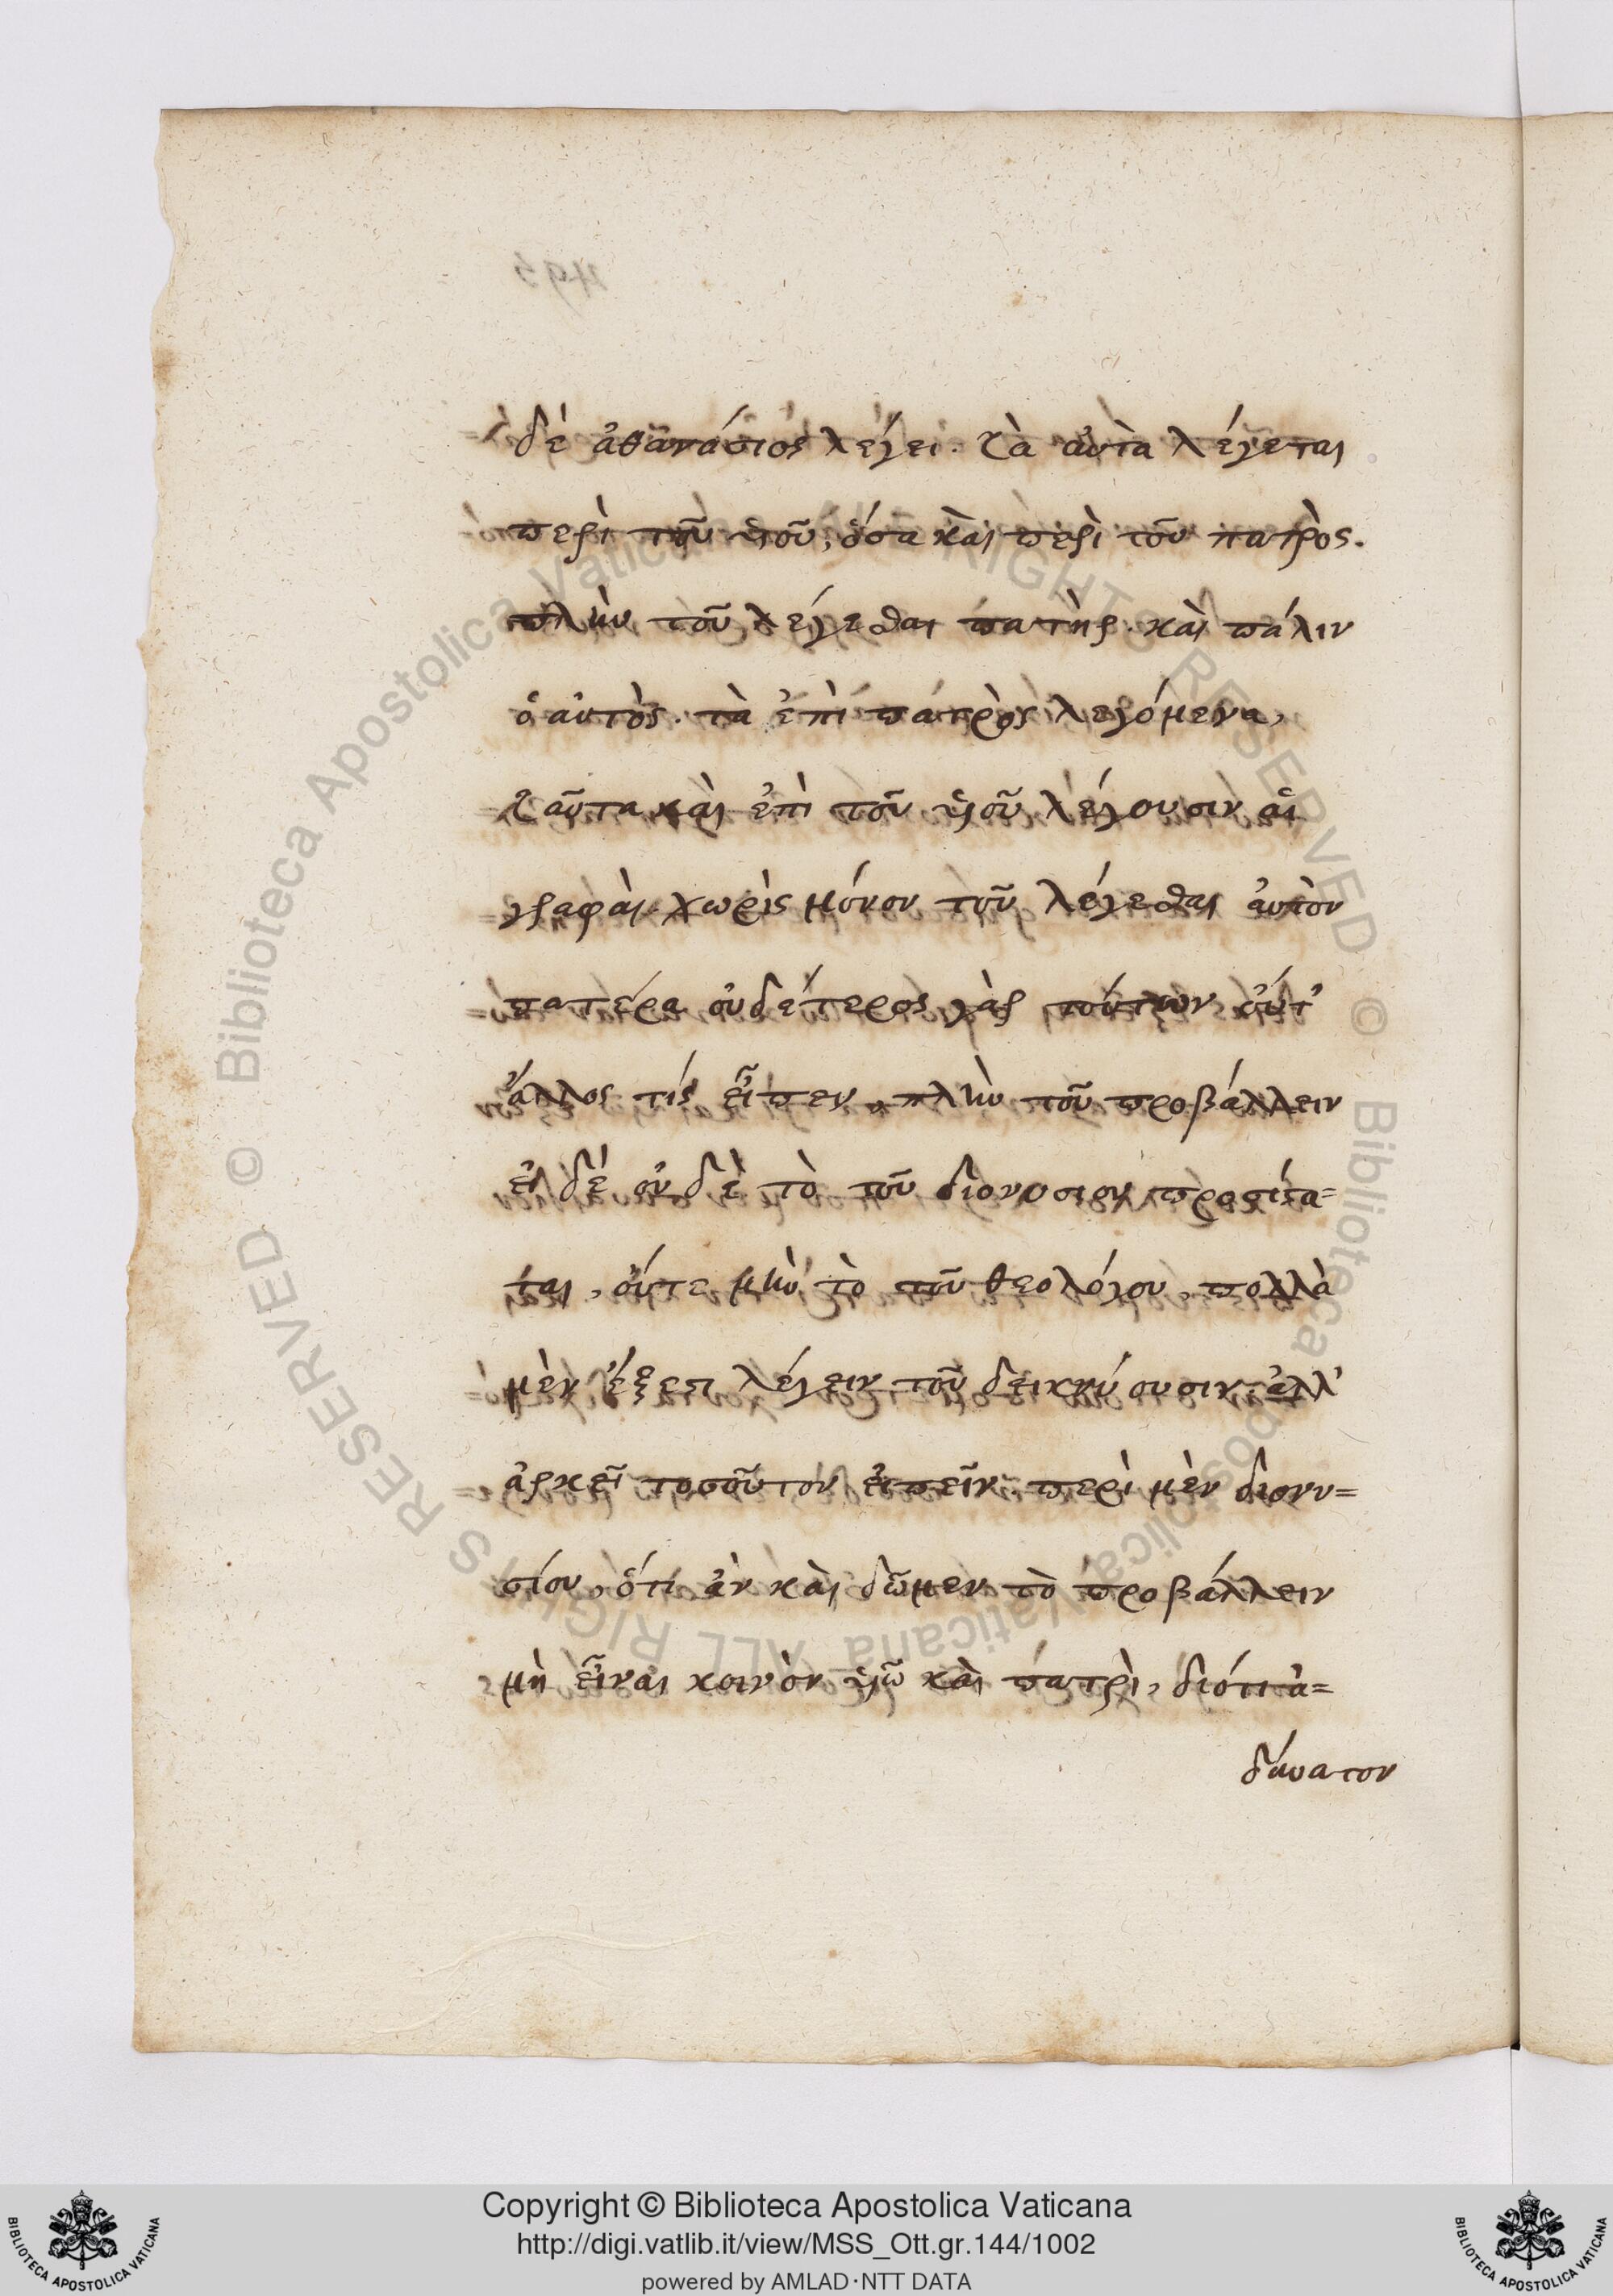 δὲ ἀθανάσιος λέγει. τὰ αὐτὰ λέγεται
περὶ τοῦ υἱοῦ, ὅσα καὶ περὶ τοῦ πατρὸς.
πλὴν τοῦ λέγεσθαι πατὴρ. καὶ πάλιν
ὁ αὐτὸς. τὰ ἐπὶ πατρὸς λεγόμενα,
ταῦτα καὶ ἐπὶ τοῦ υἱοῦ λέγουσιν αἱ
γραφαὶ. χωρὶς μόνον τοῦ λέγεσθαι αὐτὸν
πατέρα οὐδέτερος γὰρ τούτων οὔτ'
ἄλλος τίς εἶπεν, πλὴν τοῦ προβάλλειν
εἰ δέ οὐδὲ τὸ τοῦ διονυσίου προσίεα=
ται, οὔτε μὴν τὸ τοῦ θεολόγου, πολλὰ
μὲν ἔξεστι λέγειν τοῦ δεικνύουσιν. ἀλλ'
ἀρκεῖ τοσοῦτον εἰπεῖν. περὶ μὲν διονυ=
σίου, ὅτι ἂν καὶ δῶμεν τὸ προβάλλειν
μὴ εἶναι κοινὸν υἱῷ καὶ πατρὶ, διότι ἀ=
δύνατον
Copyright © Biblioteca Apostolica Vaticana
http://digi.vatlib.it/view/MSS_Ott.gr.144/1002
powered by AMLAD·NTT DATA
BIBLIOTECA APOSTOLICA VATICANA
BIBLIOTECA APOSTOLICA VATICANA
© Biblioteca Apostolica Vaticana ALL RIGHTS RESERVED
© Biblioteca Apostolica Vaticana ALL RIGHTS RESERVED